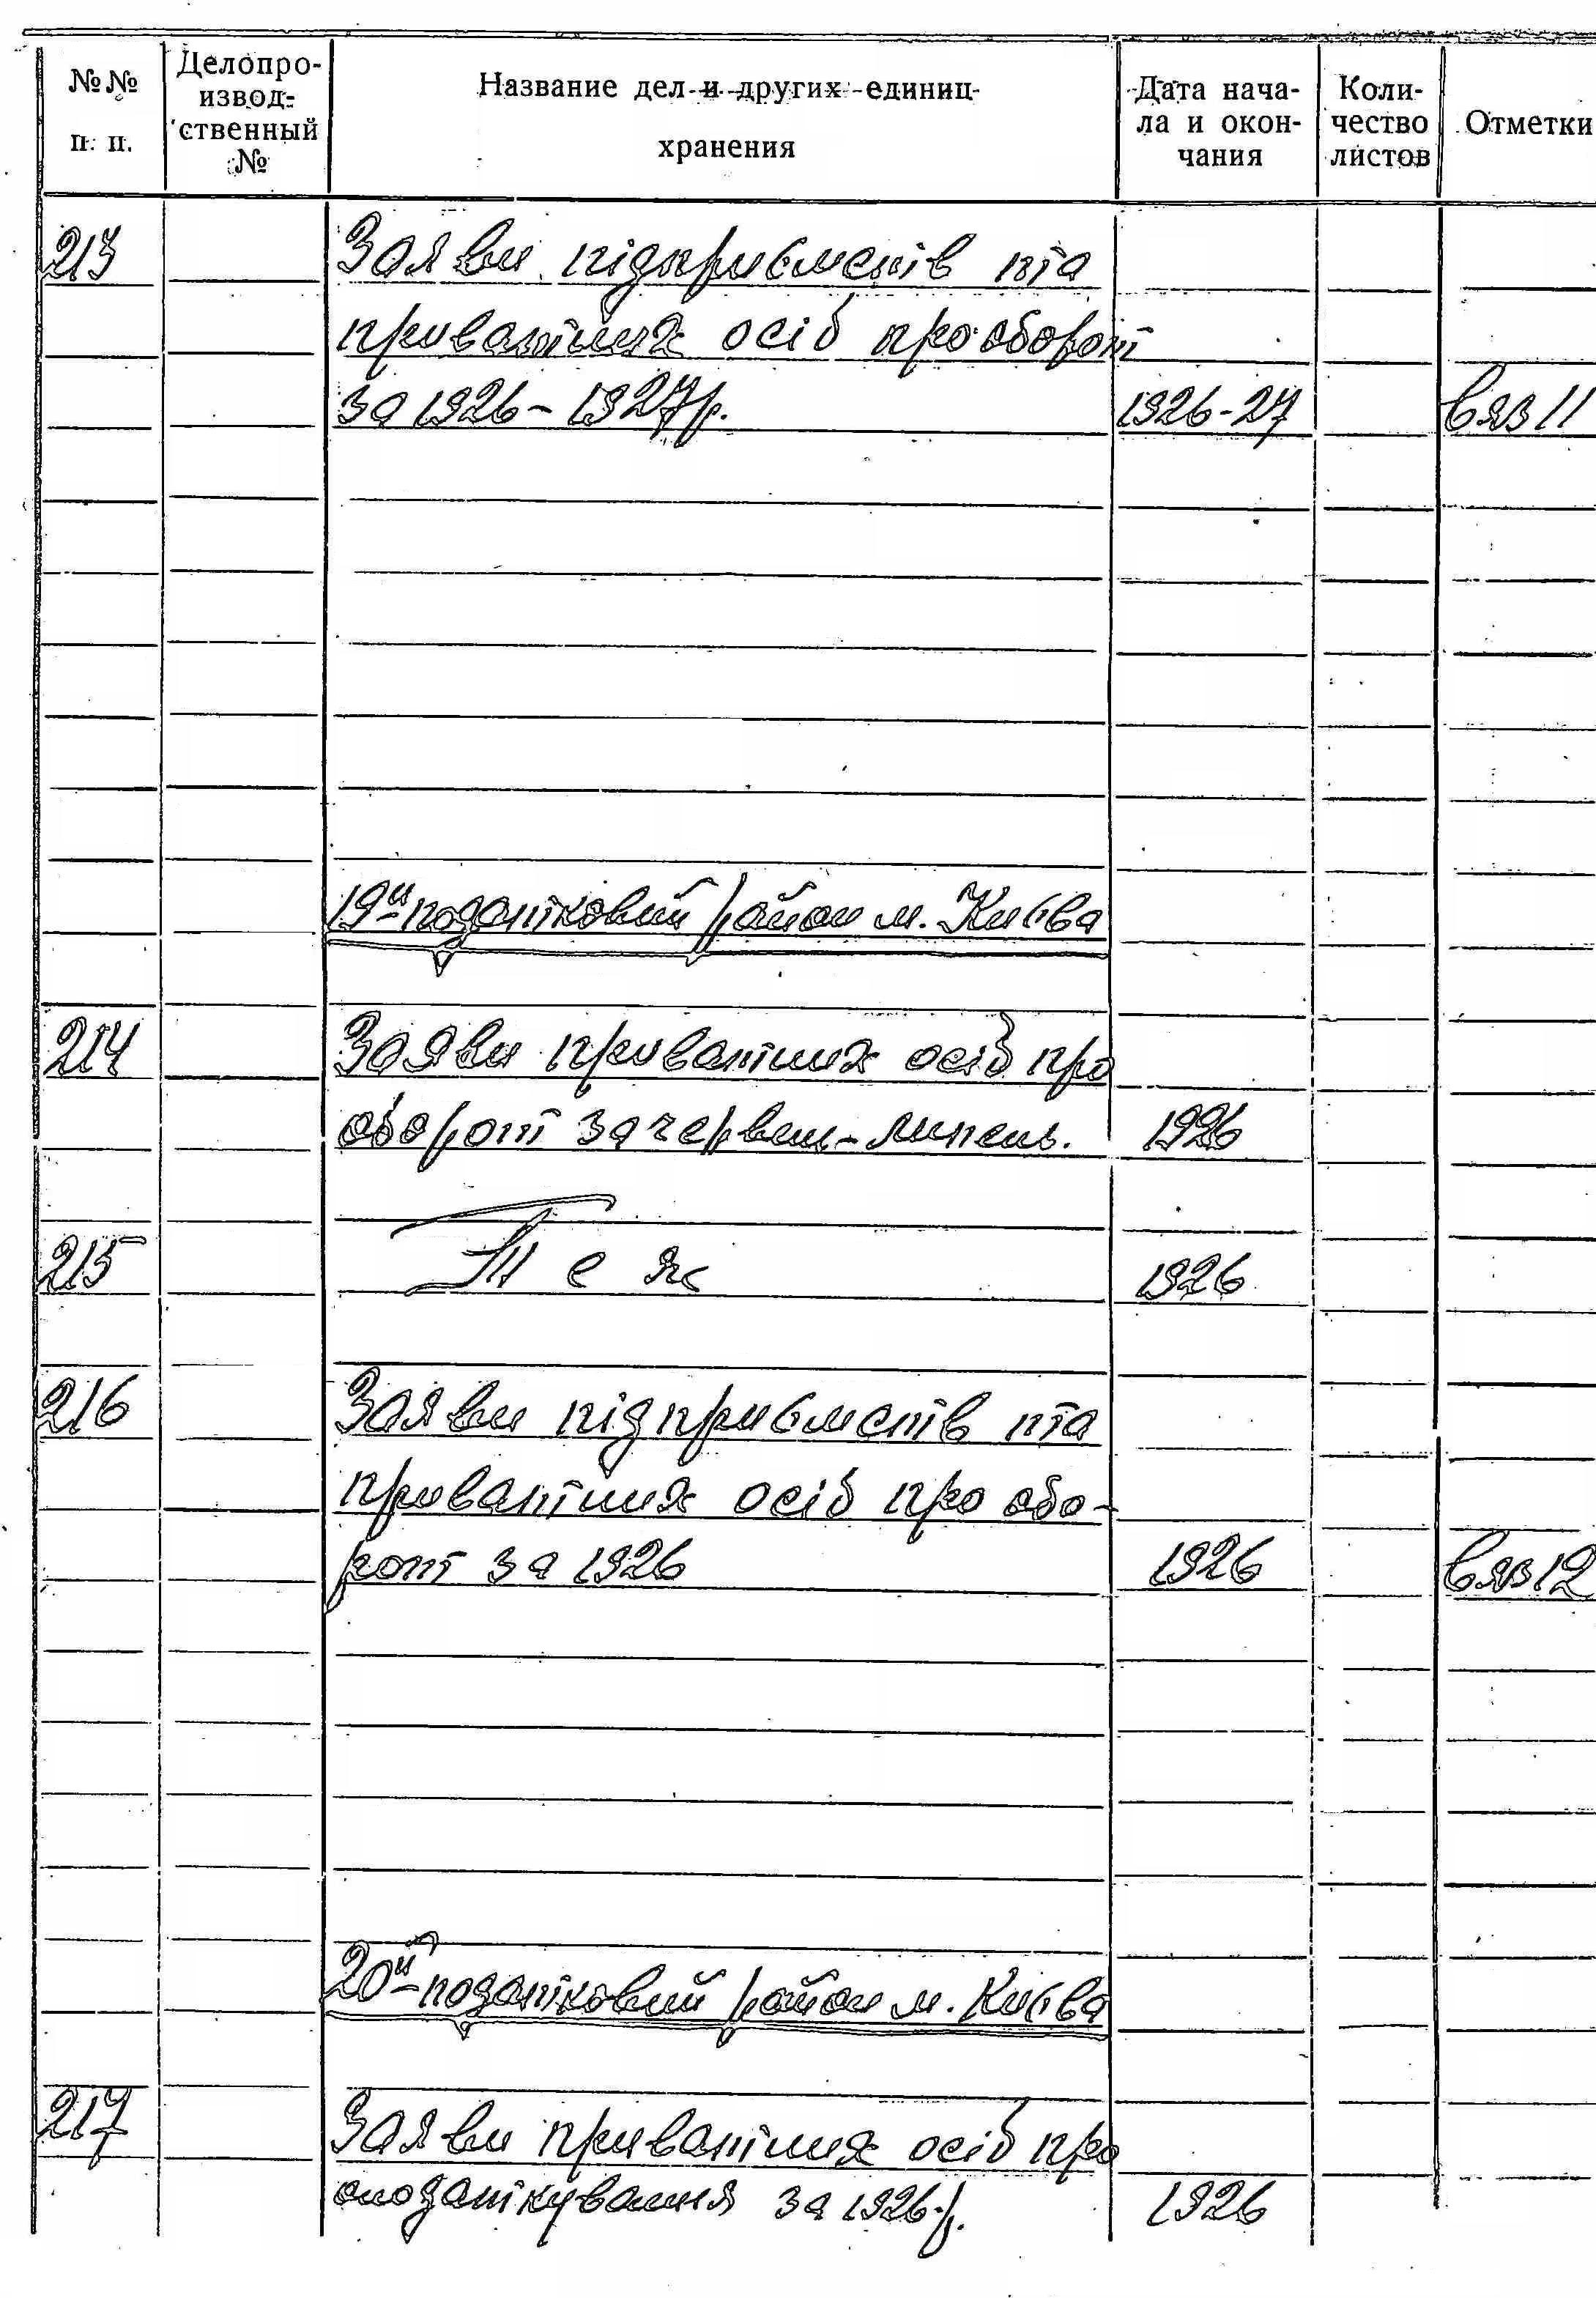 №№ п. п. Делопроизвод- ственный № Название дел и других единиц хранения Дата начала и окончания Количество листов Отметки
213 Заяви підприємств та
приватних осіб про оборот
за 1926-1927р. 1926-27 Вяз 11
19й податковий район м. Києва
214 Заяви приватних осіб про
оборот за червень-липень. 1926
215 Те ж 1926
216 Заяви підприємств та
приватних осіб про обо-
рот за 1926 1926 Вяз 12
20й податковий район м. Києва
217 Заяви приватних осіб про
оподаткування за 1926 р. 1926